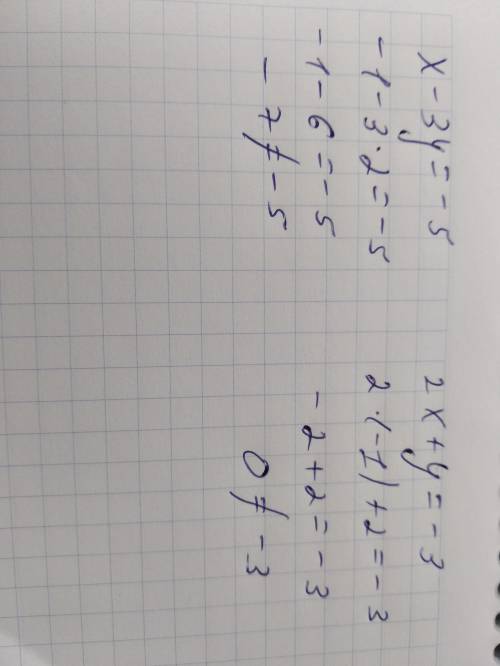 x - 3y = - 5
- 1 - 3 · 2 = - 5
- 1 - 6 = - 5
- 7 ≠ - 5
2x + y = - 3
2 · (-1) + 2 = - 3
- 2 + 2 = - 3
0 ≠ - 3